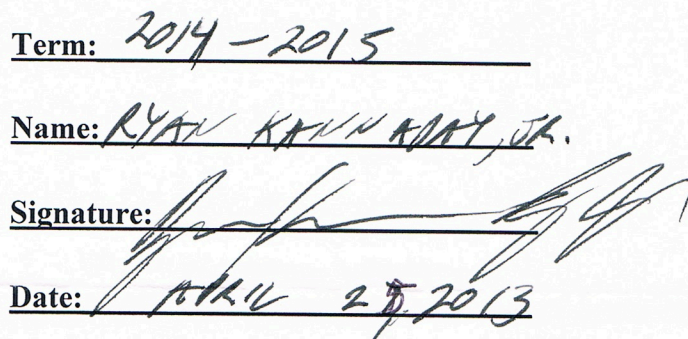 Term: 2014 - 2015
Name: RYAN KANNADAY, JR.
Signature:
Date: APRIL 25, 2013